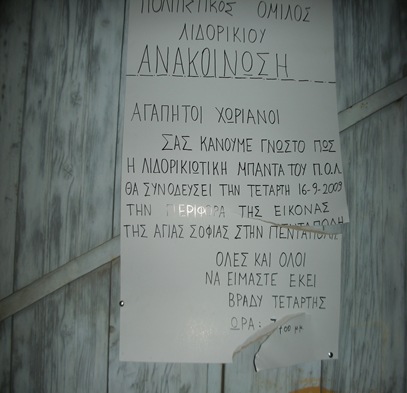 ΠΟΛΙΤΙΣΤΙΚΟΣ ΟΜΙΛΟΣ
ΛΙΔΟΡΙΚΙΟΥ
ΑΝΑΚΟΙΝΩΣΗ
ΑΓΑΠΗΤΟΙ ΧΩΡΙΑΝΟΙ
ΣΑΣ ΚΑΝΟΥΜΕ ΓΝΩΣΤΟ ΠΩΣ
Η ΛΙΔΟΡΙΚΙΩΤΙΚΗ ΜΠΑΝΤΑ ΤΟΥ Π.Ο.Λ.
ΘΑ ΣΥΝΟΔΕΥΣΕΙ ΤΗΝ ΤΕΤΑΡΤΗ 16-9-2009
ΤΗΝ ΠΕΡΙΦΟΡΑ ΤΗΣ ΕΙΚΟΝΑΣ
ΤΗΣ ΑΓΙΑΣ ΣΟΦΙΑΣ ΣΤΗΝ ΠΕΝΤΑΠΟΛΗ
ΟΛΕΣ ΚΑΙ ΟΛΟΙ
ΝΑ ΕΙΜΑΣΤΕ ΕΚΕΙ
ΒΡΑΔΥ ΤΕΤΑΡΤΗΣ
ΩΡΑ: 7:00 ΜΜ